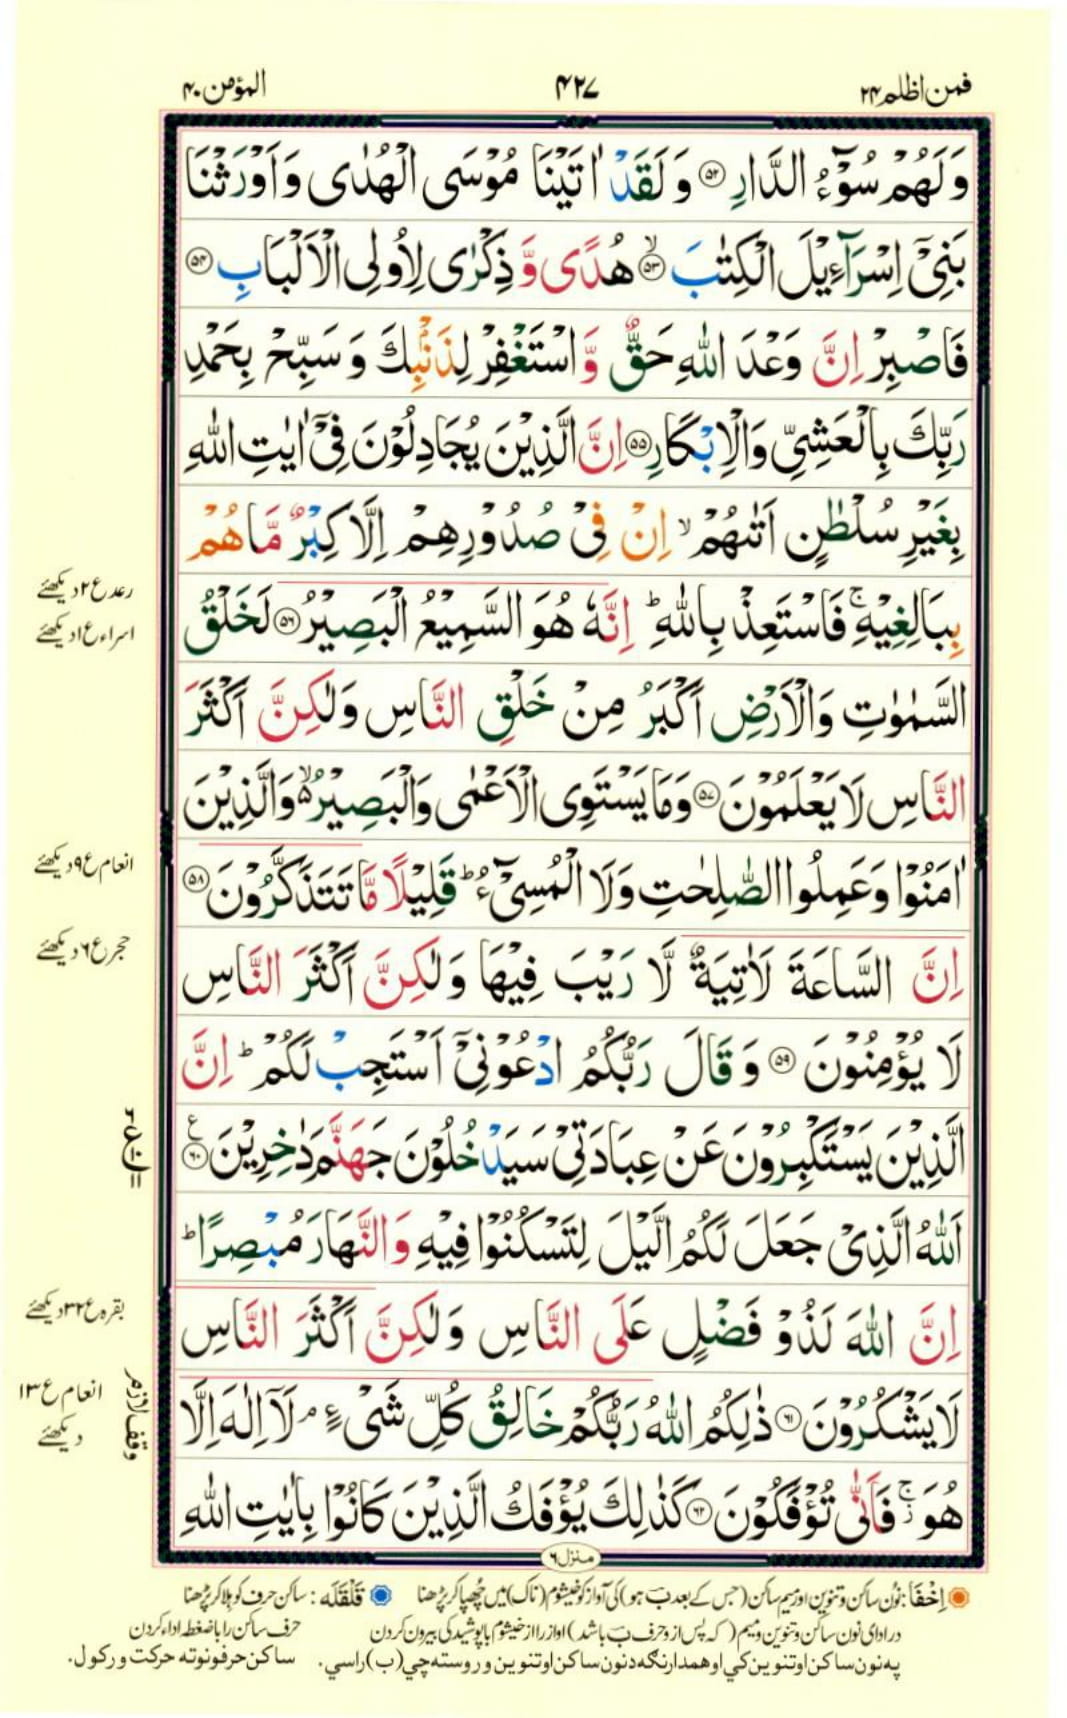 فمن اظلم ۲۴
۴۲۷
المؤمن ۴۰
وَلَهُمْ سُوْٓءُ الدَّارِ ۵۲ وَلَقَدْ اٰتَيْنَا مُوْسَى الْهُدٰى وَاَوْرَثْنَا
بَنِيْٓ اِسْرَآءِيْلَ الْكِتٰبَ ۙ ۵۳ هُدًى وَّذِكْرٰى لِاُولِى الْاَلْبَابِ ۵۴
فَاصْبِرْ اِنَّ وَعْدَ اللّٰهِ حَقٌّ وَّاسْتَغْفِرْ لِذَنْۢبِكَ وَسَبِّحْ بِحَمْدِ
رَبِّكَ بِالْعَشِيِّ وَالْاِبْكَارِ ۵۵ اِنَّ الَّذِيْنَ يُجَادِلُوْنَ فِيْٓ اٰيٰتِ اللّٰهِ
بِغَيْرِ سُلْطٰنٍ اَتٰىهُمْ ۙ اِنْ فِيْ صُدُوْرِهِمْ اِلَّا كِبْرٌ مَّا هُمْ
بِبَالِغِيْهِ ۚ فَاسْتَعِذْ بِاللّٰهِ ؕ اِنَّهٗ هُوَ السَّمِيْعُ الْبَصِيْرُ ۵۶ لَخَلْقُ
السَّمٰوٰتِ وَالْاَرْضِ اَكْبَرُ مِنْ خَلْقِ النَّاسِ وَلٰكِنَّ اَكْثَرَ
النَّاسِ لَا يَعْلَمُوْنَ ۵۷ وَمَا يَسْتَوِى الْاَعْمٰى وَالْبَصِيْرُ ۙ۬ وَالَّذِيْنَ
اٰمَنُوْا وَعَمِلُوا الصّٰلِحٰتِ وَلَا الْمُسِيْٓءُ ؕ قَلِيْلًا مَّا تَتَذَكَّرُوْنَ ۵۸
اِنَّ السَّاعَةَ لَاٰتِيَةٌ لَّا رَيْبَ فِيْهَا وَلٰكِنَّ اَكْثَرَ النَّاسِ
لَا يُؤْمِنُوْنَ ۵۹ وَقَالَ رَبُّكُمُ ادْعُوْنِيْٓ اَسْتَجِبْ لَكُمْ ؕ اِنَّ
الَّذِيْنَ يَسْتَكْبِرُوْنَ عَنْ عِبَادَتِيْ سَيَدْخُلُوْنَ جَهَنَّمَ دٰخِرِيْنَ ۶۰ ع
اَللّٰهُ الَّذِيْ جَعَلَ لَكُمُ الَّيْلَ لِتَسْكُنُوْا فِيْهِ وَالنَّهَارَ مُبْصِرًا ؕ
اِنَّ اللّٰهَ لَذُوْ فَضْلٍ عَلَى النَّاسِ وَلٰكِنَّ اَكْثَرَ النَّاسِ
لَا يَشْكُرُوْنَ ۶۱ ذٰلِكُمُ اللّٰهُ رَبُّكُمْ خَالِقُ كُلِّ شَيْءٍ ۘ لَآ اِلٰهَ اِلَّا
هُوَ ۚ فَاَنّٰى تُؤْفَكُوْنَ ۶۲ كَذٰلِكَ يُؤْفَكُ الَّذِيْنَ كَانُوْا بِاٰيٰتِ اللّٰهِ
منزل ۶
رعد ع ۲ دیکھئے
اسراء ع ۱ دیکھئے
انعام ع ۹ دیکھئے
حجر ع ۶ دیکھئے
بقره ع ۳۲ دیکھئے
وقف لازم
انعام ع ۱۳
دیکھئے
اِخْفَا: نون ساکن و تنوین اور میم ساکن (جس کے بعد ب ہو) کی آواز کو خیشوم (ناک) میں چُھپا کر پڑھنا
قَلْقَلَه: ساکن حرف کو ہلا کر پڑھنا
در ادای نون ساکن و تنوین و میم (که پس از و حرف ب باشد) اواز را از خیشوم با پوشیدگی بیرون کردن
حرف ساکن را با ضغطه ادا کردن
په نون ساکن او تنوین کې او همدارنګه د نون ساکن او تنوین وروسته چي (ب) راسي.
ساکن حرفونو ته حرکت ورکول.